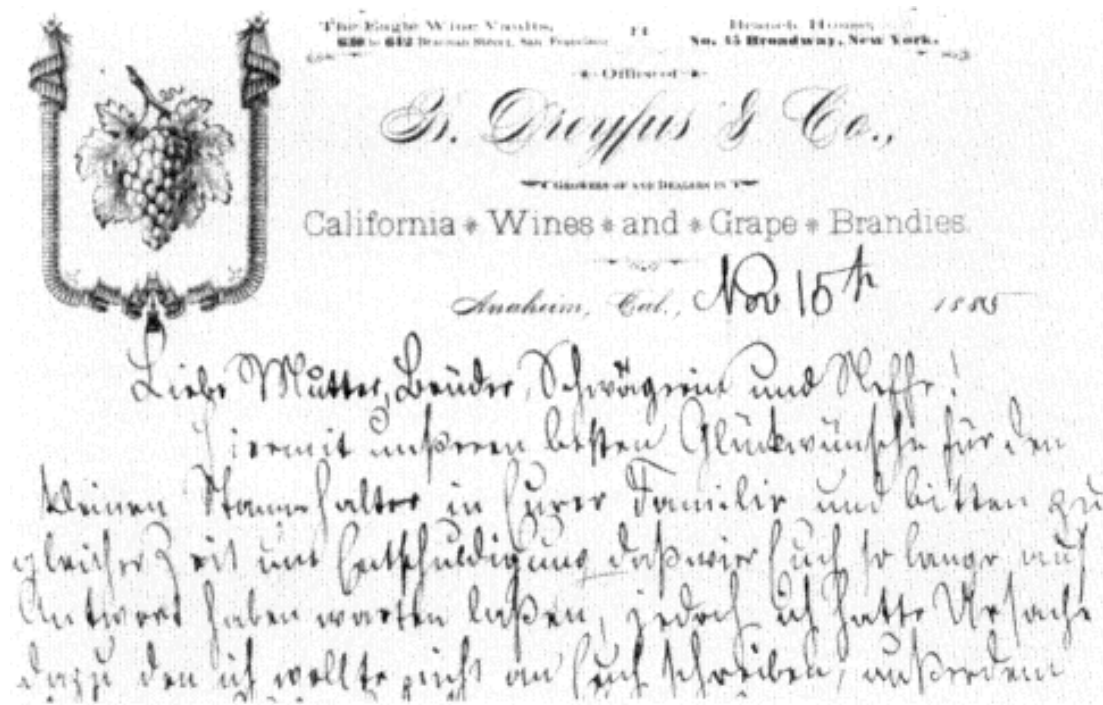 The Eagle Wine Vaults,
630 to 642 Brannan Street, San Francisco
Branch House,
No. 45 Broadway, New York.
Office of
B. Dreyfus & Co.,
GROWERS OF AND DEALERS IN
California * Wines * and * Grape * Brandies.
Anaheim, Cal., Nov 15th 1885
Liebe Mutter, Brüder, Schwägerin und Neffe!
Hiermit unßeren beßten Glückwünsche für den
kleinen Stammhalter in Eurer Familie und bitten zu
gleicher Zeit um Entschuldigung daß wier Euch so lange auf
Antwort haben warten laßen, jedoch ich hatte Ursache
dazu den ich wollte nicht an Euch schreiben, außerdem